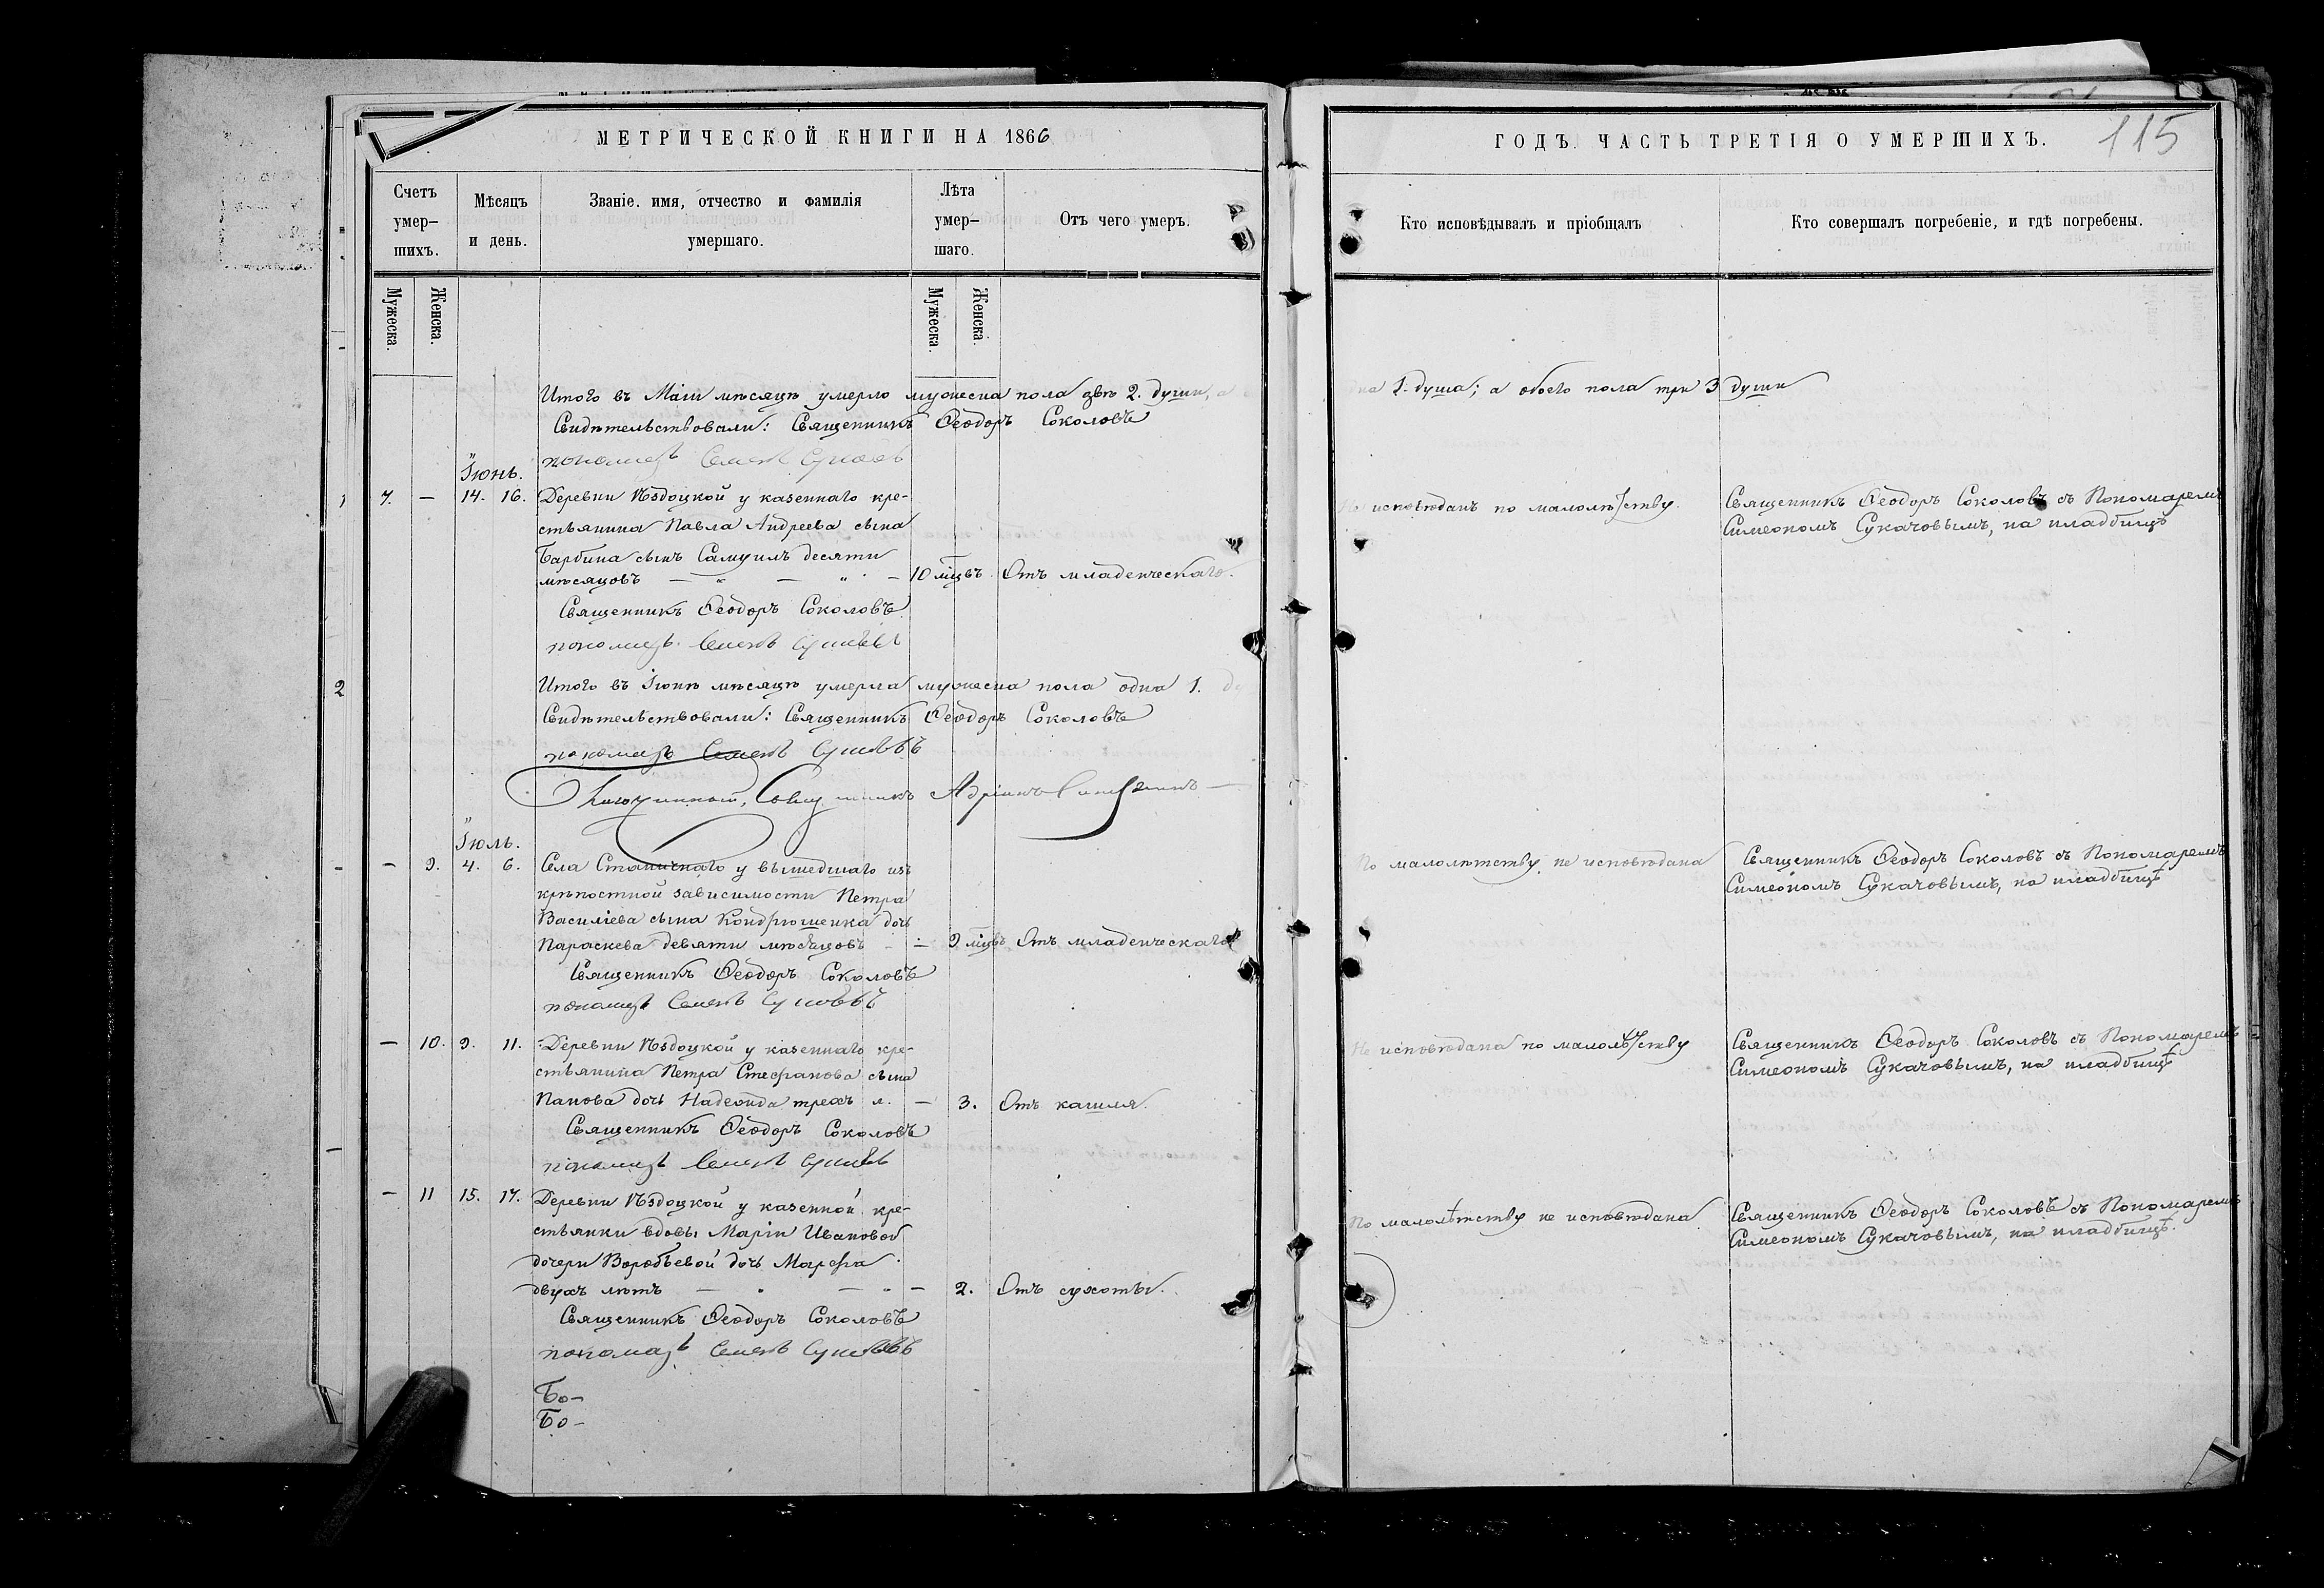 МЕТРИЧЕСКОЙ КНИГИ НА 1866
Счетъ умер–шихъ.
Мѣсяцъ и день.
Званіе. имя, отчество и фамилія умершаго.
Лѣта умер–шаго.
Отъ чего умеръ.
Мужеска.
Женска.
Мужеска.
Женска.
Итого въ Маіи мѣсяцѣ умерло мужеска пола двѣ 2. души, а
Свидѣтельствовали: Священникъ Ѳеодоръ Соколовъ
пономарь Семенъ
Іюнь.
1
7. — 14. 16. Деревни Ѣздоцкой у казеннаго кре-
стьянина Павла Андреева сына
Барбина сынъ Самуилъ десяти
мѣсяцовъ — " — " — 10 мцвъ. Отъ младенческаго.
Священникъ Ѳеодоръ Соколовъ
пономарь Семенъ
2
Итого въ Іюнѣ мѣсяцѣ умерла мужеска пола одна 1. ду
Свидѣтельствовали: Священникъ Ѳеодоръ Соколовъ
пономарь Семенъ
Благочинный, Священникъ Адріанъ
Іюль.
— 9. 4. 6. Села Станичнаго у вышедшаго изъ
крѣпостной зависимости Петра
Василіева сына Кондрюшенка дочь
Параскева девяти мѣсяцовъ - — 9 мцвъ Отъ младенческаго
Священникъ Ѳеодоръ Соколовъ
пономарь Семенъ
— 10. 9. 11. Деревни Ѣздоцкой у казеннаго кре-
стьянина Петра Стефанова сына
Панова дочь Надежда трехъ л. — 3. Отъ кашля.
Священникъ Ѳеодоръ Соколовъ
пономарь Семенъ
— 11 15. 17. Деревни Ѣздоцкой у казенной кре-
стьянки вдовы Маріи Ивановой
дочери Воробьевой дочь Марфа
двухъ лѣтъ — " — " — 2. Отъ сухоты.
Священникъ Ѳеодоръ Соколовъ
пономарь Семенъ
Бо-
Бо-
ГОДЪ. ЧАСТЬ ТРЕТІЯ О УМЕРШИХЪ.
115
Кто исповѣдывалъ и пріобщалъ
Кто совершалъ погребеніе, и гдѣ погребены.
на 1. душа; а обоего пола три 3 души
Не исповѣданъ по малолѣтству
Священникъ Ѳеодоръ Соколовъ съ Пономаремъ
Симеономъ Сукачовымъ, на кладбищѣ
По малолѣтству не исповѣдана
Священникъ Ѳеодоръ Соколовъ съ Пономаремъ
Симеономъ Сукачовымъ, на кладбищѣ
Не исповѣдана по малолѣтству
Священникъ Ѳеодоръ Соколовъ съ Пономаремъ
Симеономъ Сукачовымъ, на кладбищѣ
По малолѣтству не исповѣдана
Священникъ Ѳеодоръ Соколовъ съ Пономаремъ
Симеономъ Сукачовымъ, на кладбищѣ.